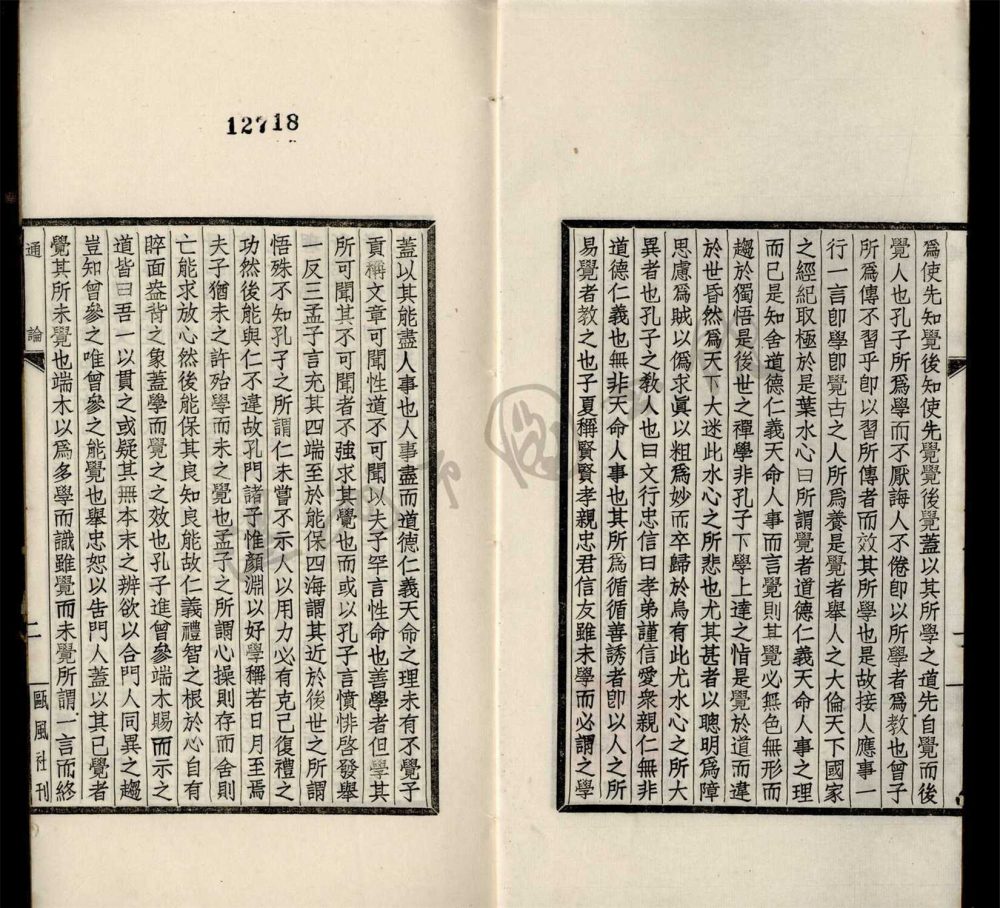 爲使先知覺後知使先覺覺後覺蓋以其所學之道先自覺而後
覺人也孔子所爲學而不厭誨人不倦卽以所學者爲教也曾子
所爲傳不習乎卽以習所傳者而效其所學也是故接人應事一
行一言卽學卽覺古之人所爲養是覺者舉人之大倫天下國家
之經紀取極於是葉水心曰所謂覺者道德仁義天命人事之理
而已是知舍道德仁義天命人事而言覺則其覺必無色無形而
趨於獨悟是後世之禪學非孔子下學上達之恉是覺於道而違
於世昏然爲天下大迷此水心之所悲也尤其甚者以聰明爲障
思慮爲賊以僞求眞以粗爲妙而卒歸於烏有此尤水心之所大
異者也孔子之教人也曰文行忠信曰孝弟謹信愛衆親仁無非
道德仁義也無非天命人事也其所爲循循善誘者卽以人之所
易覺者教之也子夏稱賢賢孝親忠君信友雖未學而必謂之學
12718
蓋以其能盡人事也人事盡而道德仁義天命之理未有不覺子
貢稱文章可聞性道不可聞以夫子罕言性命也善學者但學其
所可聞其不可聞者不強求其覺也而或以孔子言憤悱啓發舉
一反三孟子言充其四端至於能保四海謂其近於後世之所謂
悟殊不知孔子之所謂仁未嘗不示人以用力必有克己復禮之
功然後能與仁不違故孔門諸子惟顏淵以好學稱若日月至焉
夫子猶未之許殆學而未之覺也孟子之所謂心操則存而舍則
亡能求放心然後能保其良知良能故仁義禮智之根於心自有
睟面盎背之象蓋學而覺之之效也孔子進曾參端木賜而示之
道皆曰吾一以貫之或疑其無本末之辨欲以合門人同異之趨
豈知曾參之唯曾參之能覺也舉忠恕以告門人蓋以其已覺者
覺其所未覺也端木以爲多學而識雖覺而未覺所謂一言而終
通論
二
甌風社刊